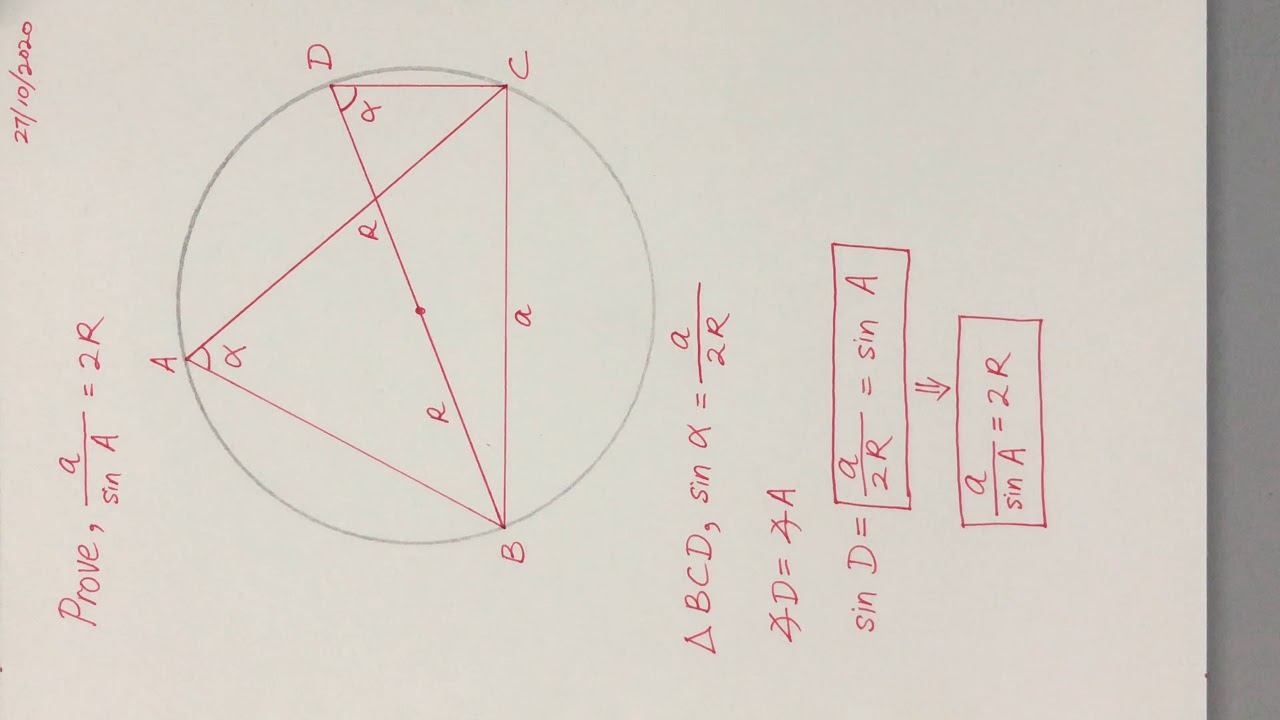 27/10/2020
Prove, a/sin A = 2R
A
D
α
α
R
R
B
a
C
△ BCD, sin α = a/2R
∡D = ∡A
sin D = a/2R = sin A
⇓
a/sin A = 2R